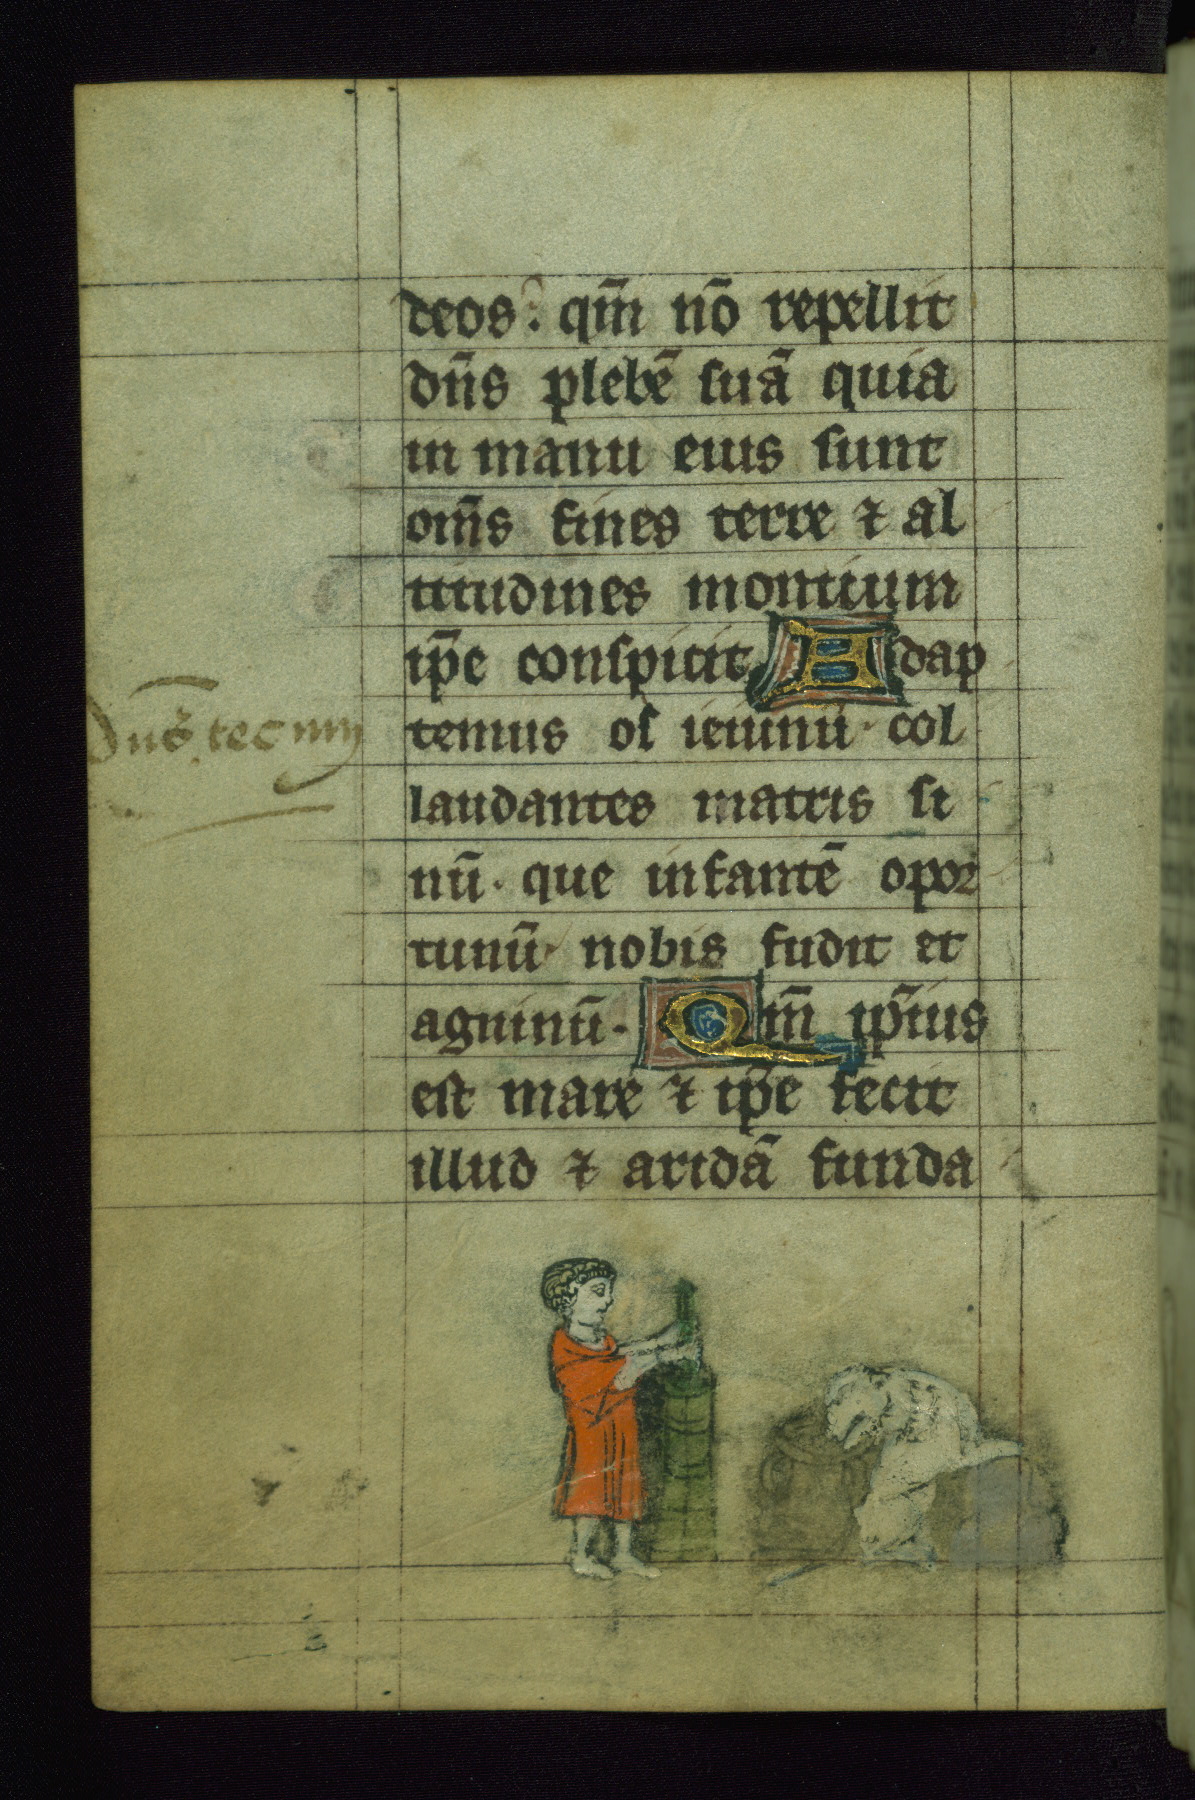 deos: qm̄ nō repellit
dn̄s plebē suā quia
in manu eius sunt
om̄s fines terre ⁊ al
titudines montium
ip̄e conspicit Adap
temus os ieiunū· col
laudantes matris si
nū· que infantē opor
tunū nobis fudit et
agninū· Qm̄ ip̄ius
est mare ⁊ ip̄e fecit
illud ⁊ aridā funda
dn̄s tecum